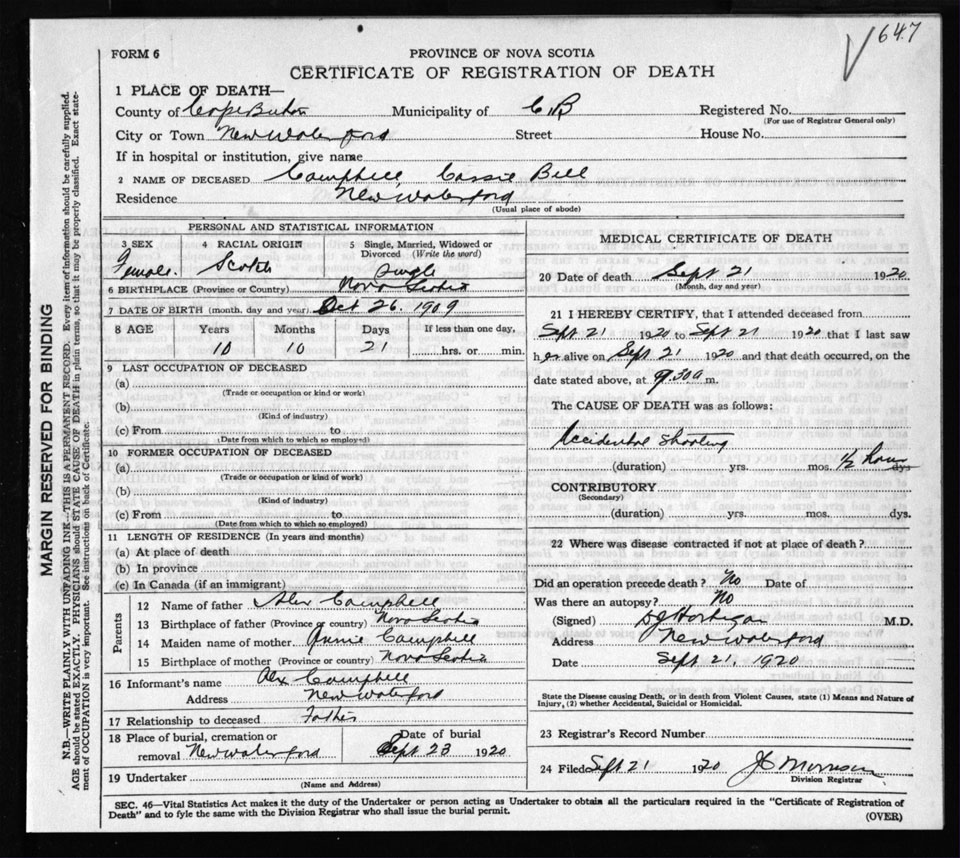 647
FORM 6
PROVINCE OF NOVA SCOTIA
CERTIFICATE OF REGISTRATION OF DEATH
1 PLACE OF DEATH—
County of Cape Breton Municipality of C B Registered No.
(For use of Registrar General only)
City or Town New Waterford Street House No.
If in hospital or institution, give name
2 NAME OF DECEASED Campbell, Cassie Bell
Residence New Waterford
(Usual place of abode)
PERSONAL AND STATISTICAL INFORMATION
3 SEX 4 RACIAL ORIGIN 5 Single, Married, Widowed or Divorced (Write the word)
Female. Scotch Single
6 BIRTHPLACE (Province or Country) Nova Scotia
7 DATE OF BIRTH (month, day and year) Oct 26, 1909
8 AGE Years Months Days If less than one day,
10 10 21 hrs. or min.
9 LAST OCCUPATION OF DECEASED
(a)
(Trade or occupation or kind or work)
(b)
(Kind of industry)
(c) From to
(Date from which to which so employed)
10 FORMER OCCUPATION OF DECEASED
(a)
(Trade or occupation or kind or work)
(b)
(Kind of industry)
(c) From to
(Date from which to which so employed)
11 LENGTH OF RESIDENCE (In years and months)
(a) At place of death
(b) In province
(c) In Canada (if an immigrant)
Parents
12 Name of father Alex Campbell
13 Birthplace of father (Province or country) Nova Scotia
14 Maiden name of mother Annie Campbell
15 Birthplace of mother (Province or country) Nova Scotia
16 Informant's name Alex Campbell
Address New Waterford
17 Relationship to deceased Father
18 Place of burial, cremation or removal New Waterford Date of burial Sept 23 1920
19 Undertaker
(Name and Address)
MEDICAL CERTIFICATE OF DEATH
20 Date of death Sept 21 1920
(Month, day and year)
21 I HEREBY CERTIFY, that I attended deceased from
Sept 21 1920 to Sept 21 1920 that I last saw
her alive on Sept 21 1920 and that death occurred, on the
date stated above, at 9.30 a m.
The CAUSE OF DEATH was as follows:
Accidental Shooting
(duration) yrs. mos. 1/2 hour dys.
CONTRIBUTORY
(Secondary)
(duration) yrs. mos. dys.
22 Where was disease contracted if not at place of death?
Did an operation precede death? No Date of
Was there an autopsy? No
(Signed) M.D.
Address New Waterford
Date Sept 21, 1920
State the Disease causing Death, or in death from Violent Causes, state (1) Means and Nature of
Injury, (2) whether Accidental, Suicidal or Homicidal.
23 Registrar's Record Number
24 Filed Sept 21 1920 J C Morrison
Division Registrar
SEC. 46—Vital Statistics Act makes it the duty of the Undertaker or person acting as Undertaker to obtain all the particulars required in the "Certificate of Registration of
Death" and to fyle the same with the Division Registrar who shall issue the burial permit.
(OVER)
MARGIN RESERVED FOR BINDING
N.B.—WRITE PLAINLY WITH UNFADING INK—THIS IS A PERMANENT RECORD. Every item of information should be carefully supplied.
AGE should be stated EXACTLY. PHYSICIANS should STATE CAUSE OF DEATH in plain terms, so that it may be properly classified. Exact state-
ment of OCCUPATION is very important. See instructions on back of Certificate.